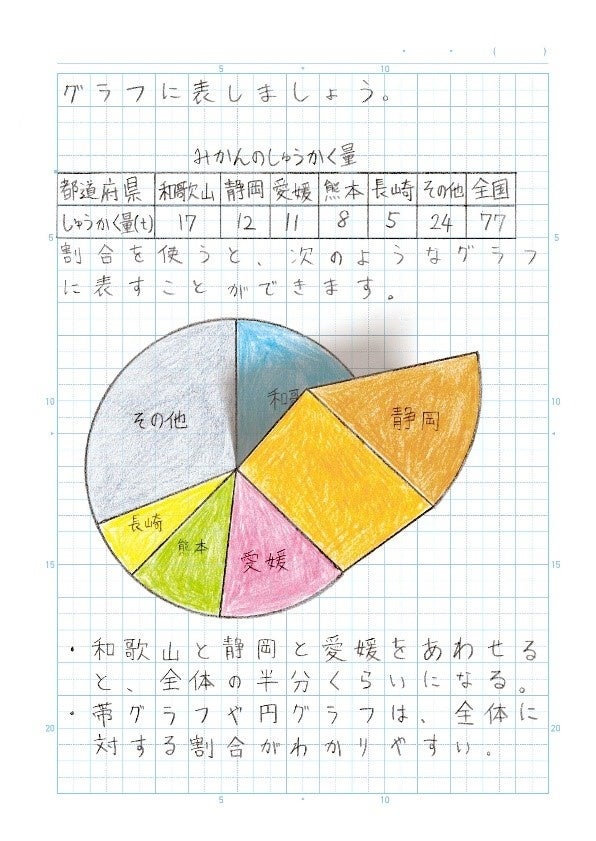 (　　)
5 10
グラフに表しましょう。
みかんのしゅうかく量
都道府県 和歌山 静岡 愛媛 熊本 長崎 その他 全国
しゅうかく量(t) 17 12 11 8 5 24 77
5 5
割合を使うと、次のようなグラフ
に表すことができます。
和歌
静岡
その他
10 10
長崎
熊本
愛媛
15 15
・和歌山と静岡と愛媛をあわせる
と、全体の半分くらいになる。
・帯グラフや円グラフは、全体に
20 20
対する割合がわかりやすい。
5 10